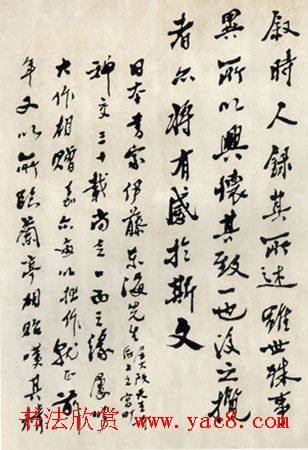 叙時人録其所述雖世殊事
異所以興懷其致一也後之攬
者亦将有感於斯文
日本書家伊藤东海先生
神交三十載尚乏一面之緣屢以
大作相贈嘉亦每以拙作就正前
年又以所臨蘭亭相貽嘆其精
书法欣赏
www.yac8.com